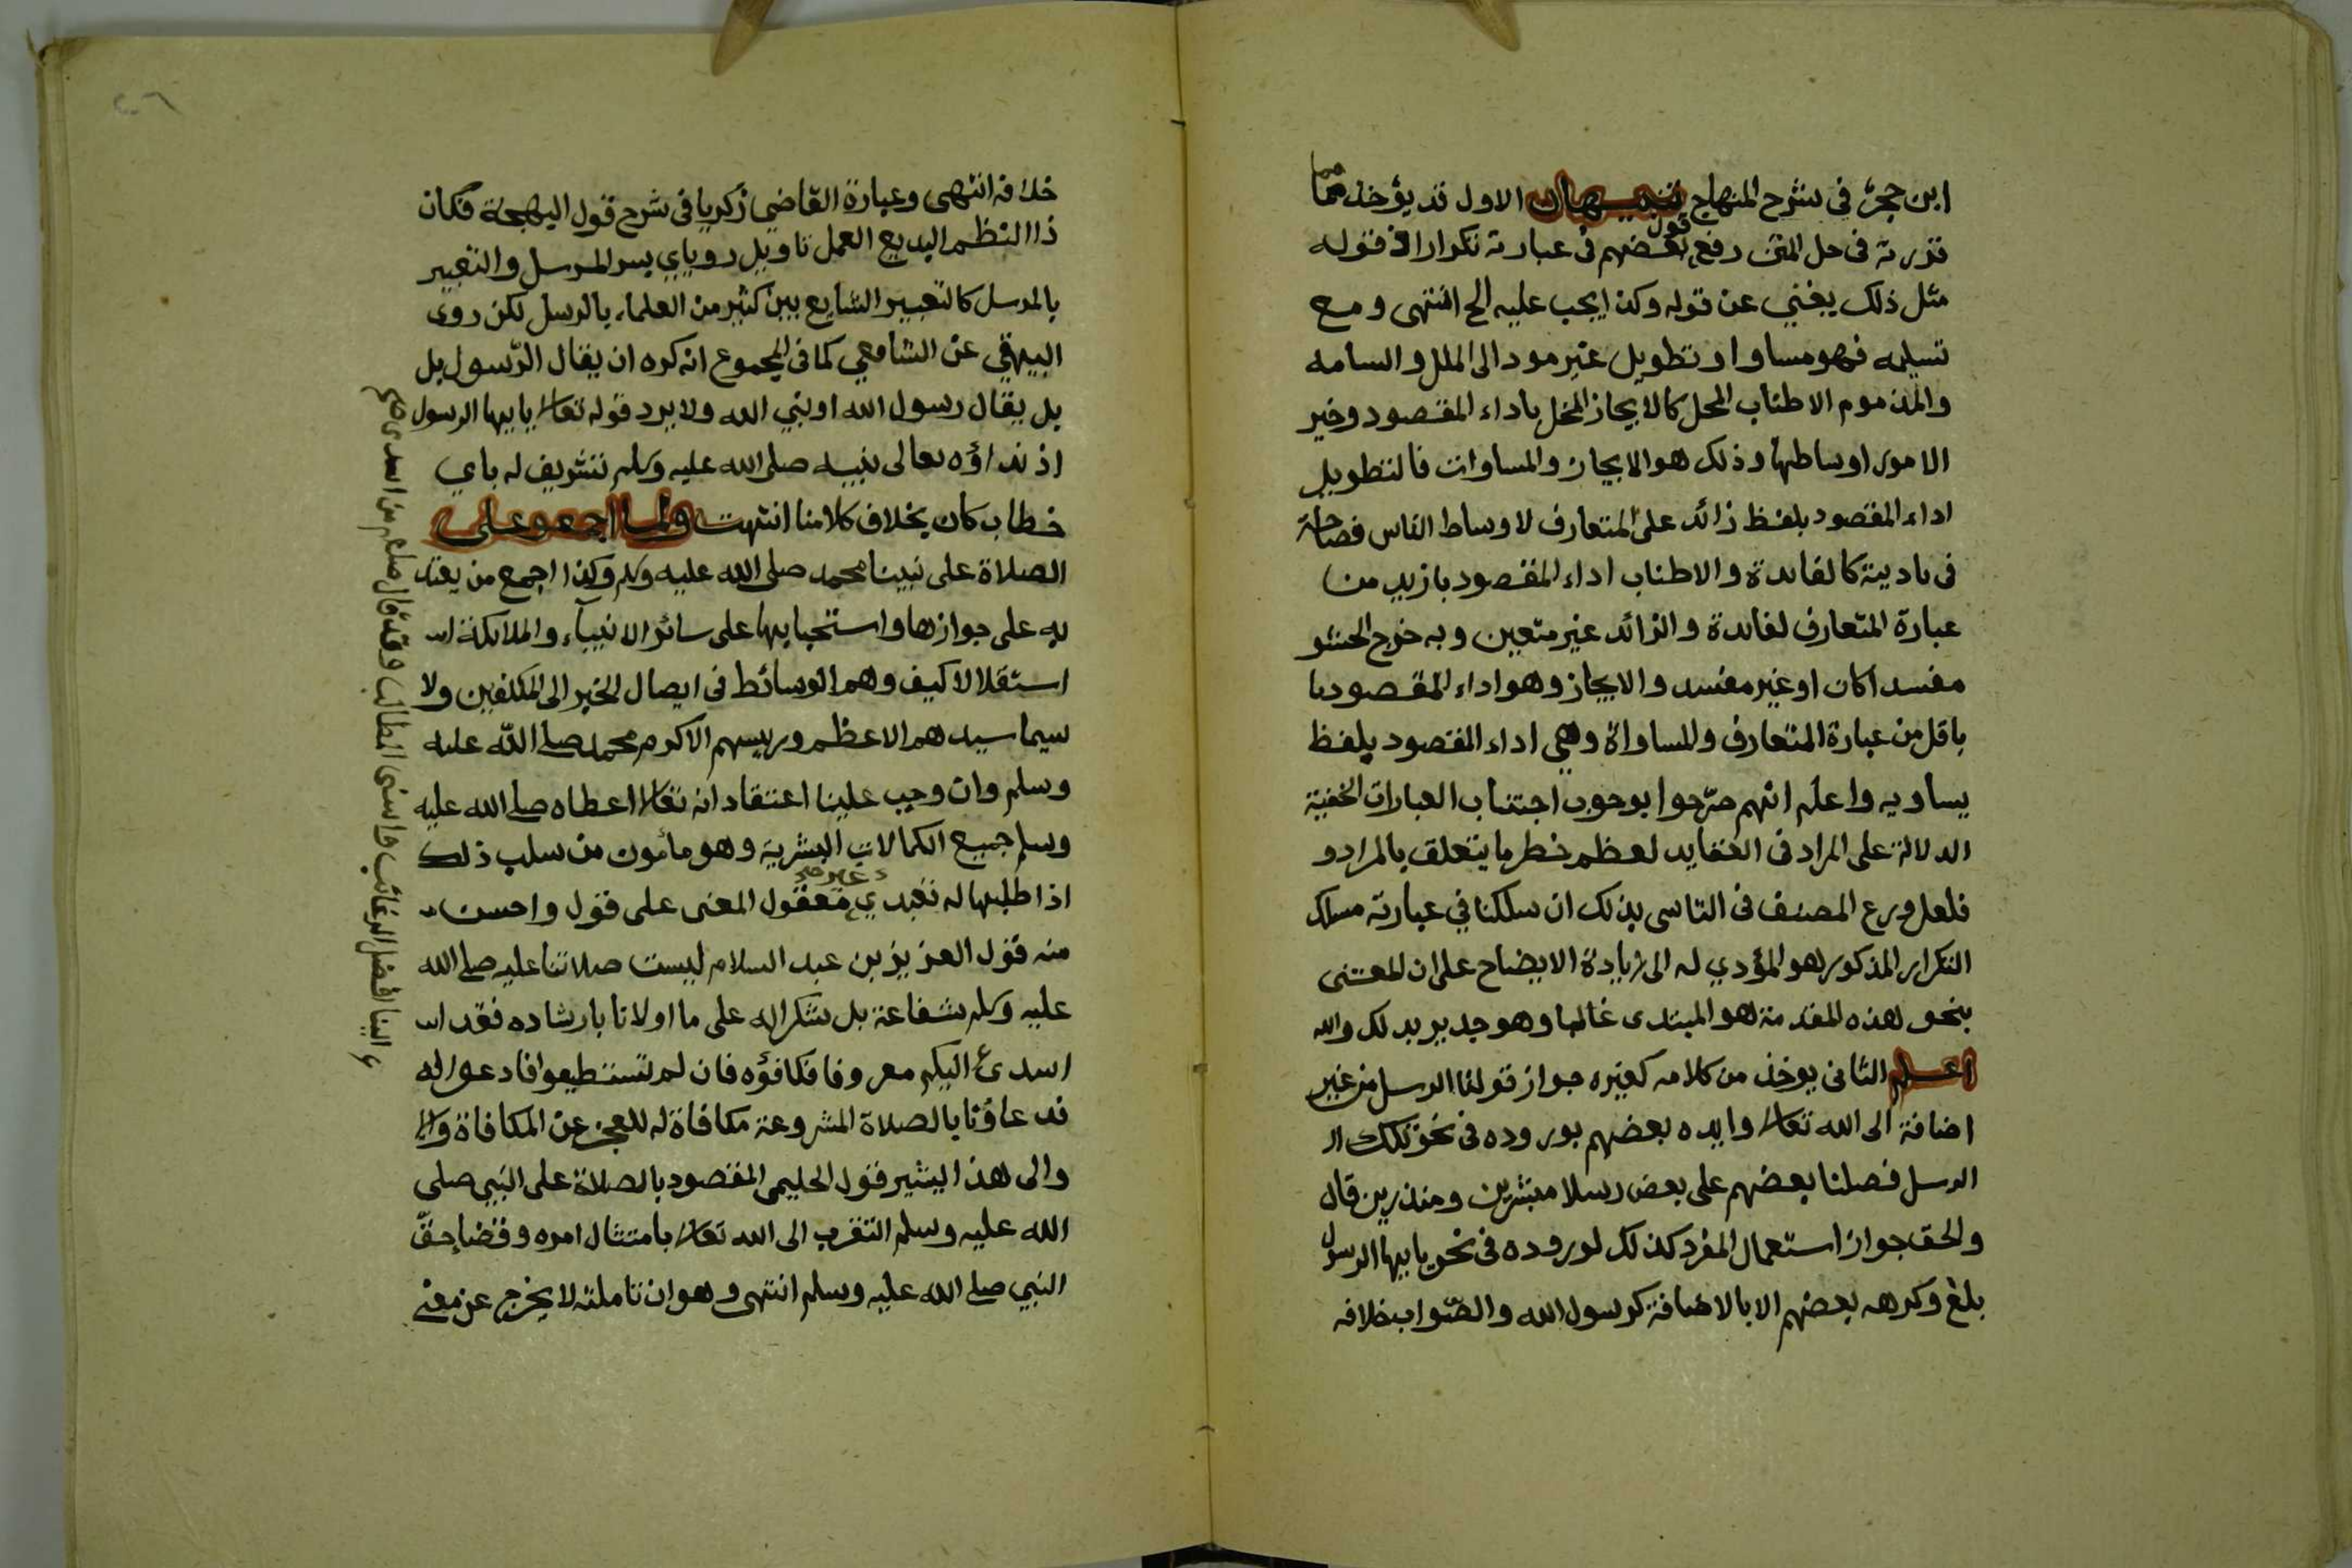 ابن حجر في شرح المنهاج تنبيهان الاول قد يؤخذ مما
قررته في حل المتن رفع قول بعضهم في عبارته تكرارا اذ قوله
مثل ذلك يغني عن قوله وكذا يجب عليه الخ انتهى و مع
تسليمه فهو مساو او تطويل غير مود الى الملل والسامه
والمذموم الاطناب المحل كالايجاز المخل باداء المقصود وخير
الامور اوساطها وذلك هو الايجاز والمساوات فالتطويل
اداء المقصود بلفظ زائد على المتعارف لاوساط الناس فصاحة
في تاديته كالفائدة والاطناب اداء المقصود بازيد من
عبارة المتعارف لفائدة والزائد غير متعين وبه خرج الحشو
مفسدا كان او غير مفسد والايجاز وهو اداء المقصود با
باقل من عبارة المتعارف والمساواة وهي اداء المقصود بلفظ
يساويه واعلم انهم صرّحوا بوجوب اجتناب العبارات الخفية
الدلالة على المراد في العقايد لعظم خطر ما يتعلق بالمراد و
فلعل ورع المصنف في التاسى بذلك ان سلكنا في عبارته مسلك
التكرار المذكور هو المؤدي له الى زيادة الايضاح على ان المعتنى
بنحو هذه المقدمة هو المبتدى غالبا وهو جدير بدلك والله
اعلم الثانى يوخذ من كلامه كغيره جواز قولنا الرسل من غير
اضافة الى الله تعالى وايده بعضهم بوروده في نحو تلك ال
الرسل فضلنا بعضهم على بعض رسلا مبشرين ومنذرين قال
والحق جواز استعمال المفرد كذلك لوروده في نحو يا ايها الرسول
بلغ وكرهه بعضهم الا بالاضافة كرسول الله والصّواب خلافه
خلافه انتهى وعبارة القاضي زكريا في شرح قول البهجة فكان
ذا النظم البديع العمل تاويل روياي بسر المرسل والتعبير
بالمرسل كالتعبير الشايع بين كثير من العلماء بالرسل لكن روى
البيهقي عن الشافعي كما في المجموع انه كره ان يقال الرّسول بل
بل يقال رسول الله او نبي الله ولا يرد قوله تعالى يا ايها الرسول
اذ نداؤه تعالى نبيه صلى الله عليه وسلم تشريف له باي
خطاب كان بخلاف كلامنا انتهت ولما اجمعوا على
الصلاة على نبينا محمد صلى الله عليه وسلم وكذا اجمع من يعتد
به على جوازها واستحبابها على سائر الانبياء والملائكة اس
استقلالا كيف وهم الوسائط في ايصال الخير الى المكلفين ولا
سيما سيدهم الاعظم ورييسهم الاكرم محمد صلى الله عليه
وسلم وان وجب علينا اعتقاد انه تعالى اعطاه صلى الله عليه
وسلم جميع الكمالات البشرية وهو مأمون من سلب ذلك
اذا طلبها له تعبدي غير معقول المعنى على قول واحسن
منه قول العزيز بن عبد السلام ليست صلاتنا عليه صلى الله
عليه وسلم شفاعة بل شكرا له على ما اولانا بارشاده فقد اس
اسدى اليكم معروفا فكافؤه فان لم تستطيعوا فادعوا له
فدعاؤنا بالصلاة المشروعة مكافاة له للعجز عن المكافاة وال
والى هذا يشير قول الحليمى المقصود بالصلاة على النبي صلى
الله عليه وسلم التقرب الى الله تعالى بامتثال امره وقضا حقّ
النبي صلى الله عليه وسلم انتهى وهو ان تاملته لا يخرج عن معنى
الينا افضل الرغائب واسنى المطالب وقد قال صلعم من اسدى صح